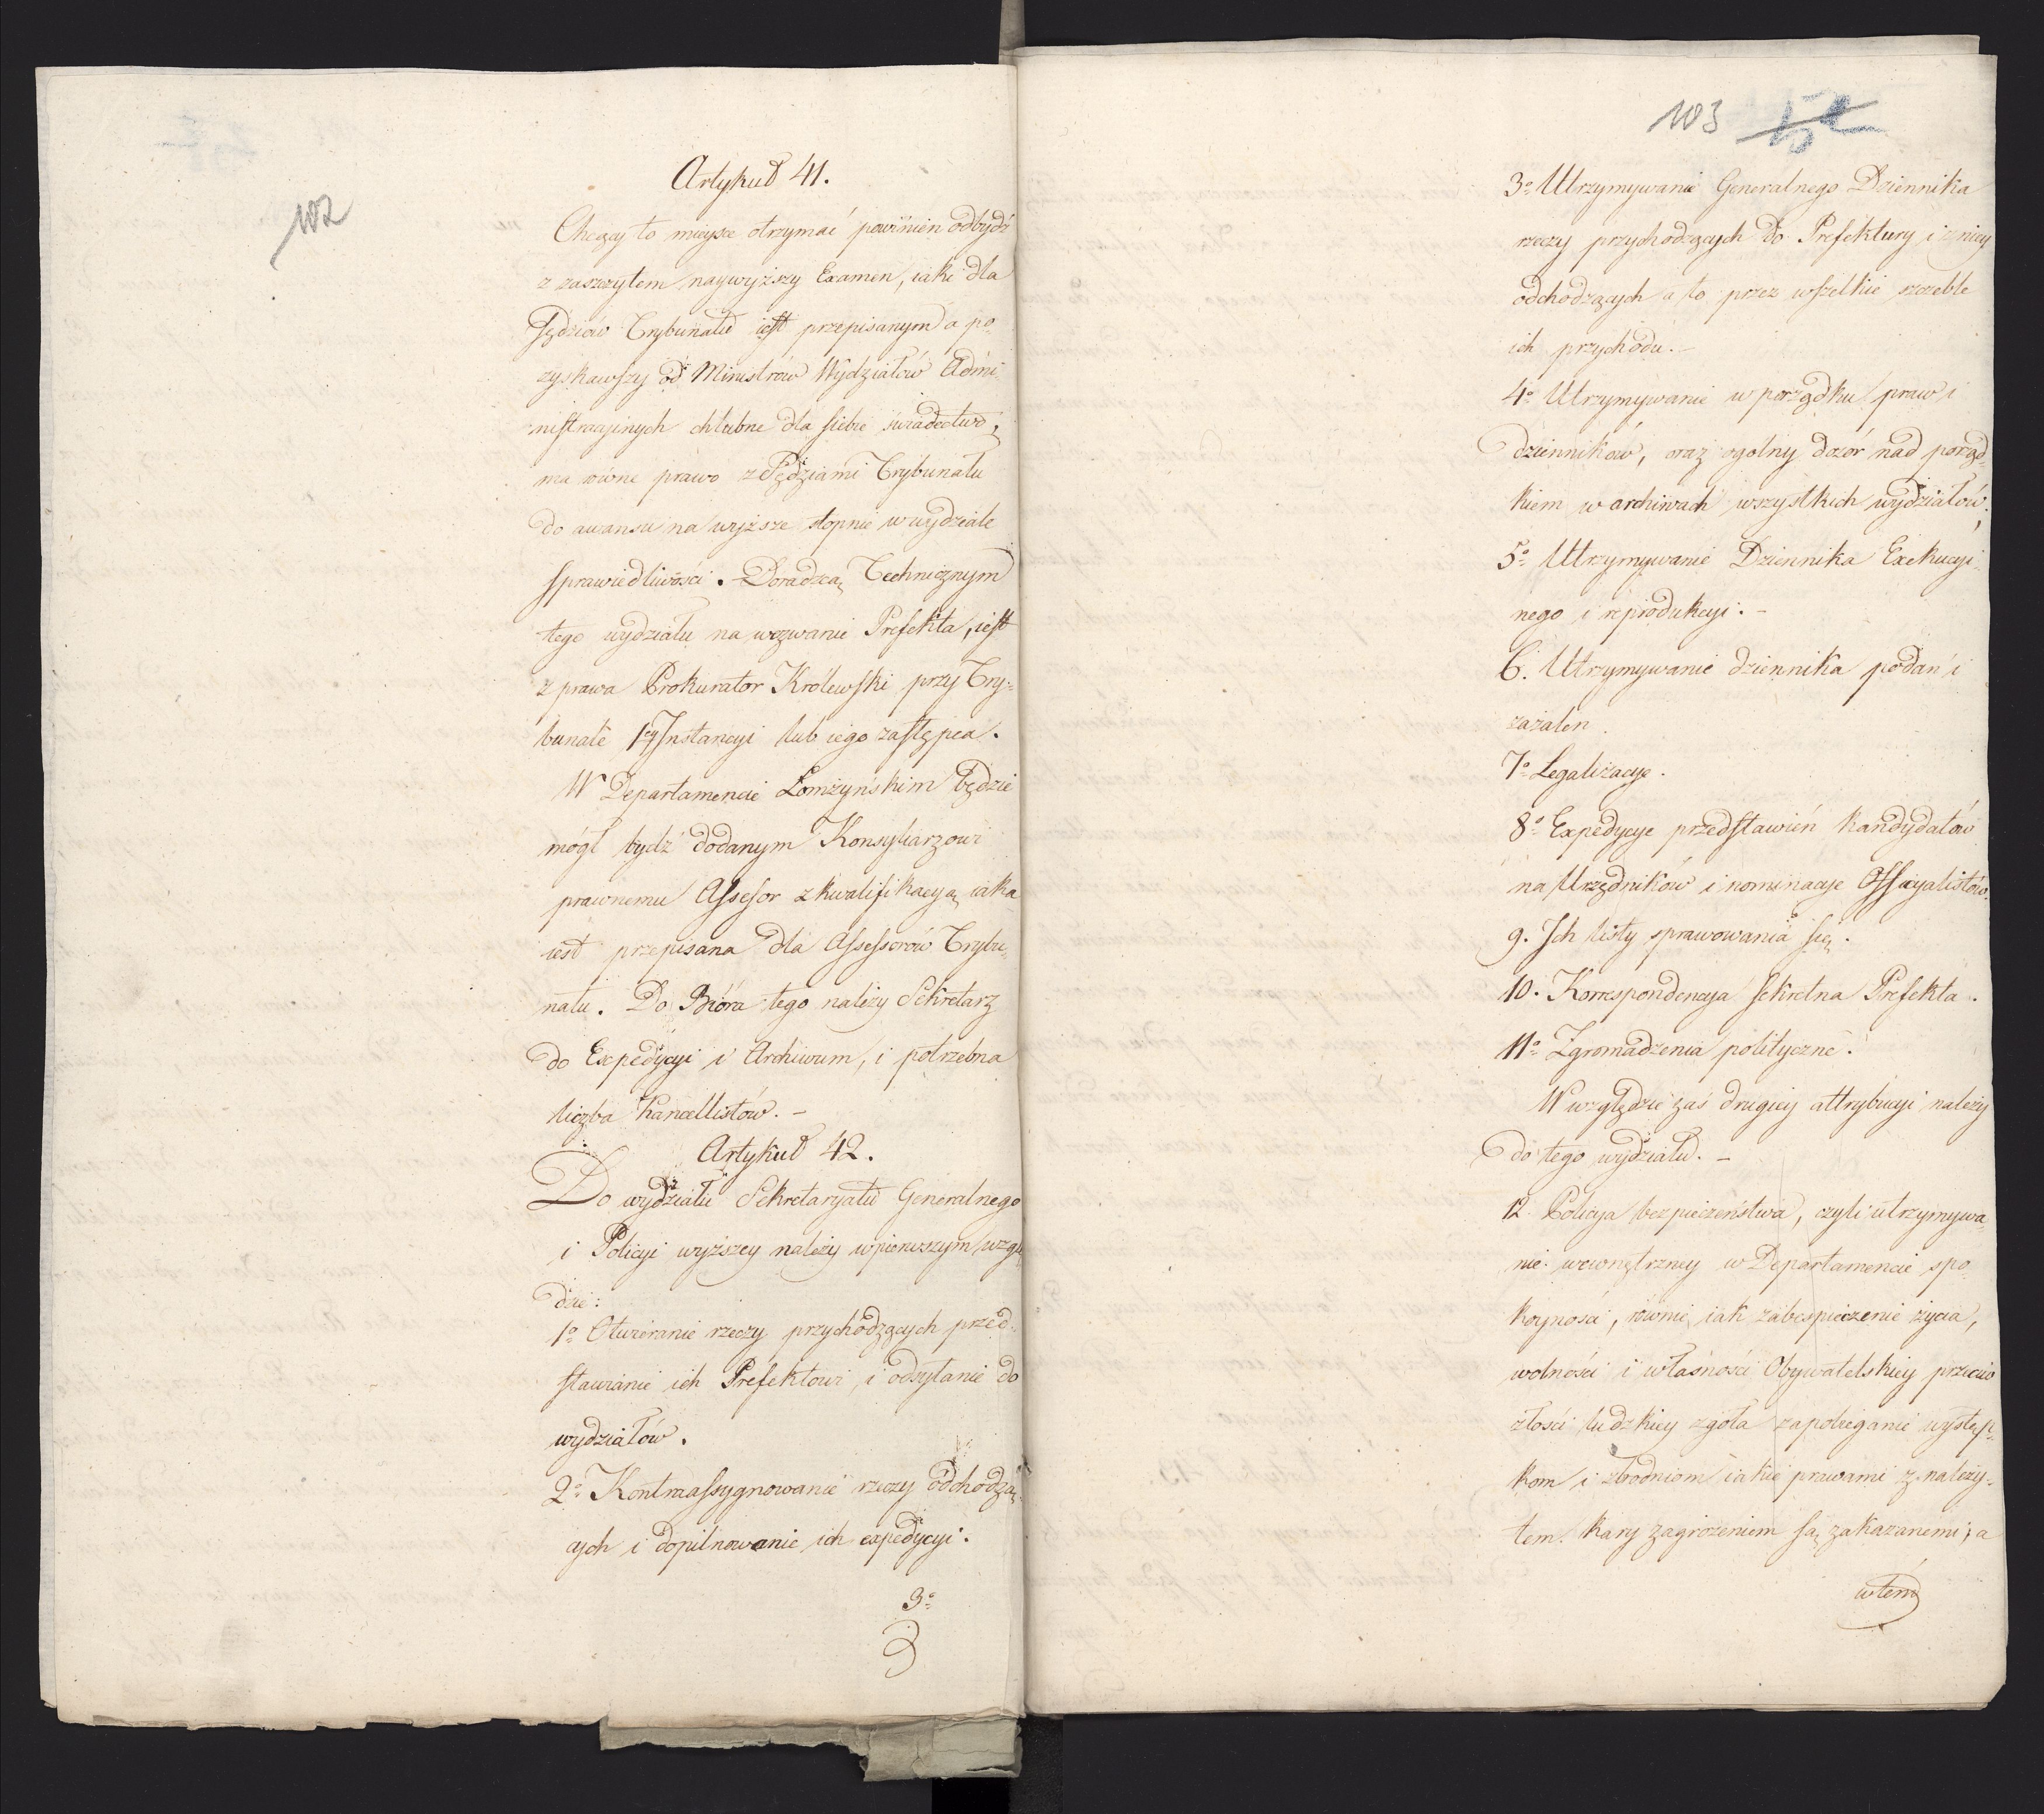 102
Artykuł 41.
Chcący to mieysce otrzymać powinien odbydź
z zaszczytem naywyższy Examen, iaki dla
Sędziów Trybunału iest przepisanym a po-
zyskawszy od Ministrów Wydziałów Admi-
nistracyinych chlubne dla siebie świadectwo,
ma równe prawo z Sędziami Trybunału
do awansu na wyższe stopnie w wydziale
sprawiedliwości. Doradzcą Technicznym
tego wydziału na wezwanie Prefekta, iest
z prawa Prokurator Królewski przy Try-
bunale 1ey Instancyi lub iego zastępca.
W Departamencie Łomżyńskim będzie
mógł bydź dodanym Konsyliarzowi
prawnemu Assesor z kwalifikacyą iaka
iest przepisana dla Assessorów Trybu-
nału. Do Bióra tego należy Sekretarz
do Expedycyi i Archiwum, i potrzebna
liczba Kancellistów. -
Artykuł 42.
Do wydziału Sekretaryatu Generalnego
i Policyi wyższey należy w pierwszym wzglę
dzie:
1o Otwieranie rzeczy przychodzących przed-
stawianie ich Prefektowi, i odsyłanie do
wydziałów.
2o Kontraassygnowanie rzeczy odchodzą-
cych i dopilnowanie ich expedycyi.
3o
103 52
3o Utrzymywanie Generalnego Dziennika
rzeczy przychodzących do Prefektury i z niey
odchodzących a to przez wszelkie szczeble
ich przychodu. -
4o Utrzymywanie w porządku praw i
dzienników, oraz ogolny dozór nad porząd-
kiem w archiwach wszystkich wydziałów.
5o Utrzymywanie Dziennika Exekucyi-
nego i reprodukcyi. -
6. Utrzymywanie dziennika podań i
zażaleń.
7o Legalizacye.
8o Expedycye przedstawień Kandydatów
na Urzędników i nominacye Officyalistów.
9. Ich listy sprawowania się.
10. Korrespondencya sekretna Prefekta.
11o Zgromadzenia polityczne.
W względzie zaś drugiey attrybucyi należy
do tego wydziału. -
12. Policya bezpieczeństwa, czyli utrzymywa-
nie wewnętrzney w Departamencie spo
koyności, równie iak zabespieczenie życia,
wolności i własności Obywatelskiey przeciw
złości ludzkiey zgoła zapobieganie występ-
kom i zbrodniom iakie prawami z należy-
tem kary zagrożeniem są zakazanemi; a
wtem